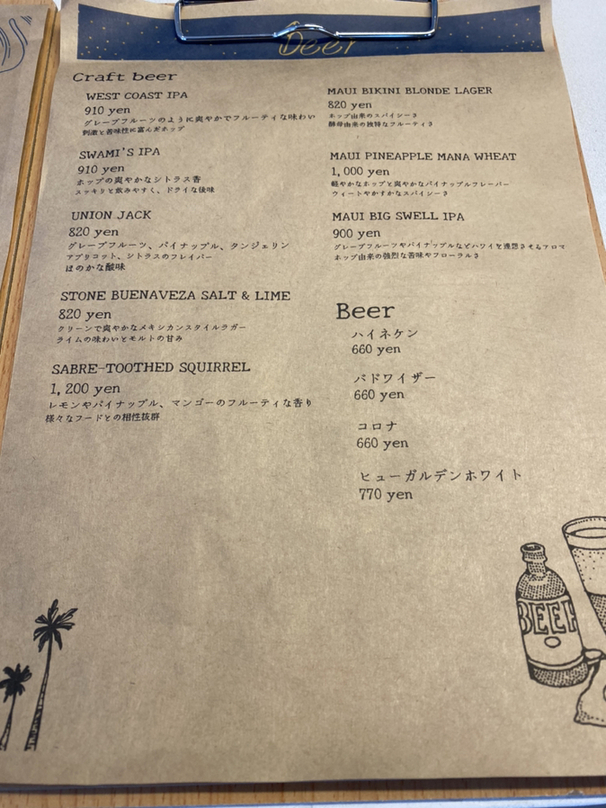 Beer
Craft beer
WEST COAST IPA
910 yen
グレープフルーツのように爽やかでフルーティな味わい
刺激と苦味性に富んだホップ
SWAMI'S IPA
910 yen
ホップの爽やかなシトラス香
スッキリと飲みやすく、ドライな後味
UNION JACK
820 yen
グレープフルーツ、パイナップル、タンジェリン
アプリコット、シトラスのフレイバー
ほのかな酸味
STONE BUENAVEZA SALT & LIME
820 yen
クリーンで爽やかなメキシカンスタイルラガー
ライムの味わいとモルトの甘み
SABRE-TOOTHED SQUIRREL
1,200 yen
レモンやパイナップル、マンゴーのフルーティな香り
様々なフードとの相性抜群
MAUI BIKINI BLONDE LAGER
820 yen
ホップ由来のスパイシーさ
酵母由来の独特なフルーティさ
MAUI PINEAPPLE MANA WHEAT
1,000 yen
軽やかなホップと爽やかなパイナップルフレーバー
ウィートやかすかなスパイシーさ
MAUI BIG SWELL IPA
900 yen
グレープフルーツやパイナップルなどハワイを連想させるアロマ
ホップ由来の強烈な苦味やフローラルさ
Beer
ハイネケン
660 yen
バドワイザー
660 yen
コロナ
660 yen
ヒューガルデンホワイト
770 yen
BEER